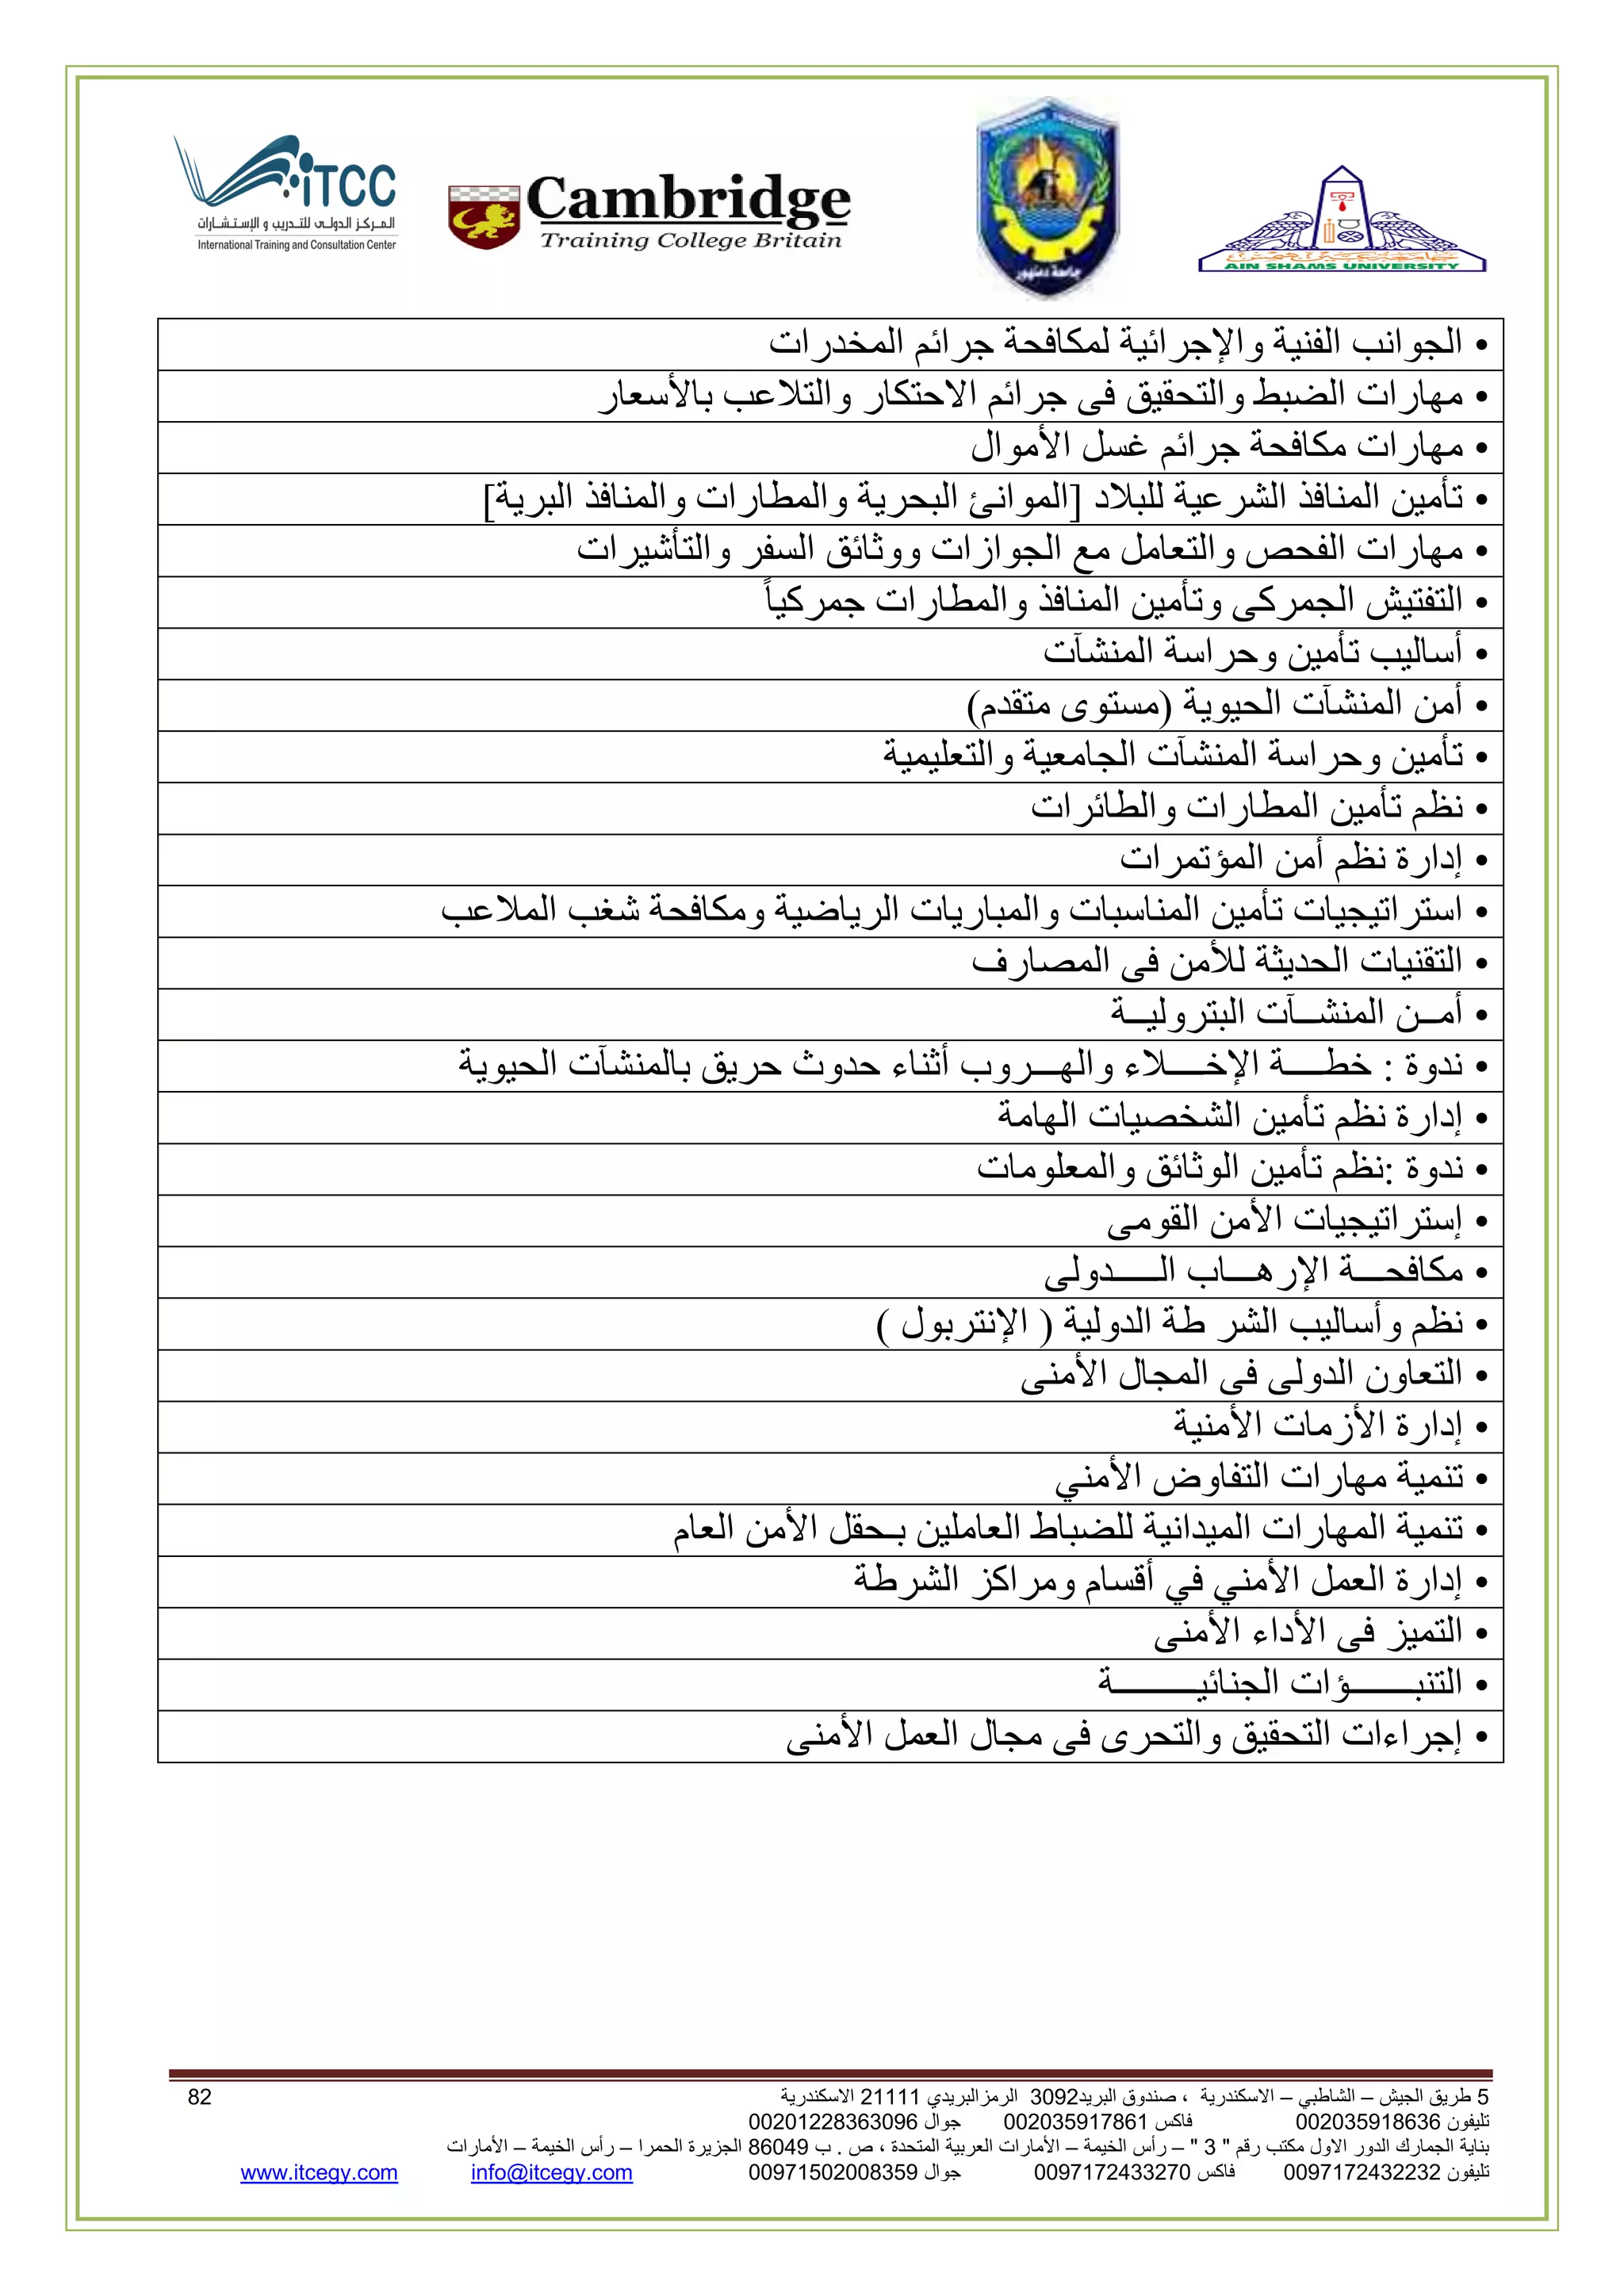 iTCC
المركز الدولى للتدريب و الإستشارات
International Training and Consultation Center
Cambridge
Training College Britain
جامعة دمنهور
AIN SHAMS UNIVERSITY
• الجوانب الفنية والإجرائية لمكافحة جرائم المخدرات
• مهارات الضبط والتحقيق فى جرائم الاحتكار والتلاعب بالأسعار
• مهارات مكافحة جرائم غسل الأموال
• تأمين المنافذ الشرعية للبلاد [الموانئ البحرية والمطارات والمنافذ البرية]
• مهارات الفحص والتعامل مع الجوازات ووثائق السفر والتأشيرات
• التفتيش الجمركى وتأمين المنافذ والمطارات جمركياً
• أساليب تأمين وحراسة المنشآت
• أمن المنشآت الحيوية (مستوى متقدم)
• تأمين وحراسة المنشآت الجامعية والتعليمية
• نظم تأمين المطارات والطائرات
• إدارة نظم أمن المؤتمرات
• استراتيجيات تأمين المناسبات والمباريات الرياضية ومكافحة شغب الملاعب
• التقنيات الحديثة للأمن فى المصارف
• أمــن المنشــآت البتروليــة
• ندوة : خطــــة الإخــــلاء والهـــروب أثناء حدوث حريق بالمنشآت الحيوية
• إدارة نظم تأمين الشخصيات الهامة
• ندوة :نظم تأمين الوثائق والمعلومات
• إستراتيجيات الأمن القومى
• مكافحـــة الإرهـــاب الـــــدولى
• نظم وأساليب الشر طة الدولية ( الإنتربول )
• التعاون الدولى فى المجال الأمنى
• إدارة الأزمات الأمنية
• تنمية مهارات التفاوض الأمني
• تنمية المهارات الميدانية للضباط العاملين بـحقل الأمن العام
• إدارة العمل الأمني في أقسام ومراكز الشرطة
• التميز فى الأداء الأمنى
• التنبـــــــؤات الجنائيــــــــــة
• إجراءات التحقيق والتحرى فى مجال العمل الأمنى
5 طريق الجيش – الشاطبي – الاسكندرية ، صندوق البريد3092 الرمزالبريدي 21111 الاسكندرية 82
تليفون 002035918636 فاكس 002035917861 جوال 00201228363096
بناية الجمارك الدور الاول مكتب رقم " 3 " – رأس الخيمة – الأمارات العربية المتحدة ، ص . ب 86049 الجزيرة الحمرا – رأس الخيمة – الأمارات
تليفون 0097172432232 فاكس 0097172433270 جوال 00971502008359 info@itcegy.com www.itcegy.com